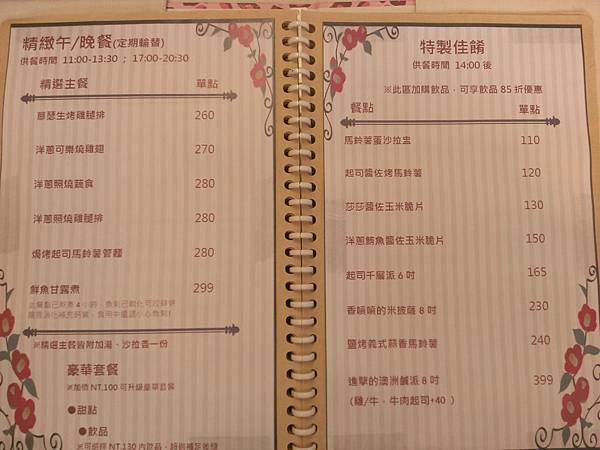 精緻午/晚餐(定期輪替)
供餐時間 11:00-13:30 ; 17:00-20:30
精選主餐 單點
草瑟生烤雞腿排 260
洋蔥可樂燒雞翅 270
洋蔥照燒蔬食 280
洋蔥照燒雞腿排 280
焗烤起司馬鈴薯管麵 280
鮮魚甘露煮 299
此餐點已熬煮4小時，魚刺已軟化可咬碎
※精選主餐皆附加湯、沙拉各一份
豪華套餐
※加價 NT.100 可升級豪華套餐
●甜點
●飲品
※可選擇 NT.130 內飲品，超過補足差額
特製佳餚
供餐時間 14:00 後
※此區加購飲品，可享飲品 85 折優惠
餐點 單點
馬鈴薯蛋沙拉盅 110
起司醬佐烤馬鈴薯 120
莎莎醬佐玉米脆片 130
洋蔥鮪魚醬佐玉米脆片 150
起司千層派 6 吋 165
香噴噴的米披薩 8 吋 230
鹽烤義式蒜香馬鈴薯 240
進擊的澳洲鹹派 8 吋 399
（雞/牛，牛肉起司+40 ）